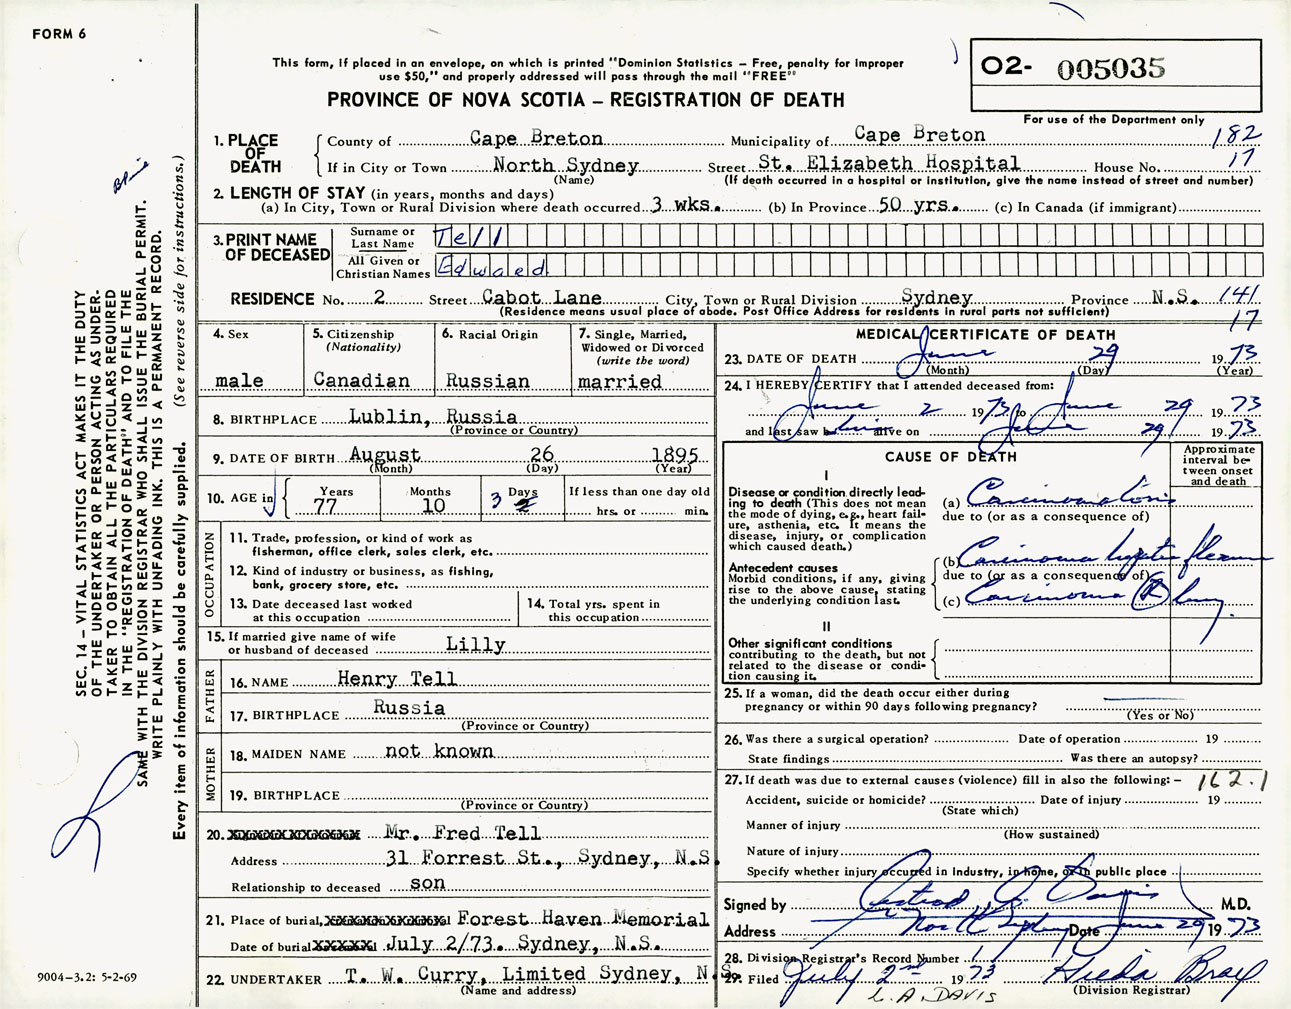 FORM 6
This form, if placed in an envelope, on which is printed "Dominion Statistics – Free, penalty for improper
use $50," and properly addressed will pass through the mail "FREE"
O2- 005035
For use of the Department only
PROVINCE OF NOVA SCOTIA – REGISTRATION OF DEATH
1. PLACE OF DEATH County of Cape Breton Municipality of Cape Breton 182
If in City or Town North Sydney Street St. Elizabeth Hospital House No. 17
(Name) (If death occurred in a hospital or institution, give the name instead of street and number)
2. LENGTH OF STAY (in years, months and days)
(a) In City, Town or Rural Division where death occurred 3 wks. (b) In Province 50 yrs. (c) In Canada (if immigrant)
3. PRINT NAME OF DECEASED Surname or Last Name Tell
All Given or Christian Names Edward
RESIDENCE No. 2 Street Cabot Lane City, Town or Rural Division Sydney Province N.S. 141
(Residence means usual place of abode. Post Office Address for residents in rural parts not sufficient) 17
4. Sex male
5. Citizenship (Nationality) Canadian
6. Racial Origin Russian
7. Single, Married, Widowed or Divorced (write the word) married
8. BIRTHPLACE Lublin, Russia
(Province or Country)
9. DATE OF BIRTH August 26 1895
(Month) (Day) (Year)
10. AGE in Years 77 Months 10 Days 3 If less than one day old hrs. or min.
OCCUPATION
11. Trade, profession, or kind of work as
fisherman, office clerk, sales clerk, etc.
12. Kind of industry or business, as fishing,
bank, grocery store, etc.
13. Date deceased last worked at this occupation
14. Total yrs. spent in this occupation
15. If married give name of wife
or husband of deceased Lilly
FATHER
16. NAME Henry Tell
17. BIRTHPLACE Russia
(Province or Country)
MOTHER
18. MAIDEN NAME not known
19. BIRTHPLACE
(Province or Country)
20. Mr. Fred Tell
Address 31 Forrest St., Sydney, N.S.
Relationship to deceased son
21. Place of burial, Forest Haven Memorial
Date of burial July 2/73. Sydney, N.S.
22. UNDERTAKER T. W. Curry, Limited Sydney, N.S.
(Name and address)
MEDICAL CERTIFICATE OF DEATH
23. DATE OF DEATH June 29 1973
(Month) (Day) (Year)
24. I HEREBY CERTIFY that I attended deceased from:
June 2 1973 to June 29 1973
and last saw him alive on June 29 1973
CAUSE OF DEATH
Approximate interval between onset and death
I
Disease or condition directly lead-
ing to death (This does not mean
the mode of dying, e.g., heart fail-
ure, asthenia, etc. It means the
disease, injury, or complication
which caused death.)
(a) Carcinomatosis
due to (or as a consequence of)
Antecedent causes
Morbid conditions, if any, giving
rise to the above cause, stating
the underlying condition last.
(b) Carcinoma hepatic flexure
due to (or as a consequence of)
(c) Carcinoma (R) lung
II
Other significant conditions
contributing to the death, but not
related to the disease or condi-
tion causing it.
25. If a woman, did the death occur either during
pregnancy or within 90 days following pregnancy?
(Yes or No)
26. Was there a surgical operation? Date of operation 19
State findings Was there an autopsy?
27. If death was due to external causes (violence) fill in also the following:– 162.1
Accident, suicide or homicide? Date of injury 19
(State which)
Manner of injury
(How sustained)
Nature of injury
Specify whether injury occurred in industry, in home, or in public place
Signed by Davis M.D.
Address North Sydney Date June 29 1973
28. Division Registrar's Record Number
29. Filed July 2nd 1973 Hilda Bray
(Division Registrar)
L. A. DAVIS
SEC. 14 – VITAL STATISTICS ACT MAKES IT THE DUTY
OF THE UNDERTAKER OR PERSON ACTING AS UNDER-
TAKER TO OBTAIN ALL THE PARTICULARS REQUIRED
IN THE "REGISTRATION OF DEATH" AND TO FILE THE
SAME WITH THE DIVISION REGISTRAR WHO SHALL ISSUE THE BURIAL PERMIT.
WRITE PLAINLY WITH UNFADING INK. THIS IS A PERMANENT RECORD.
Every item of information should be carefully supplied. (See reverse side for instructions.)
9004-3.2: 5-2-69